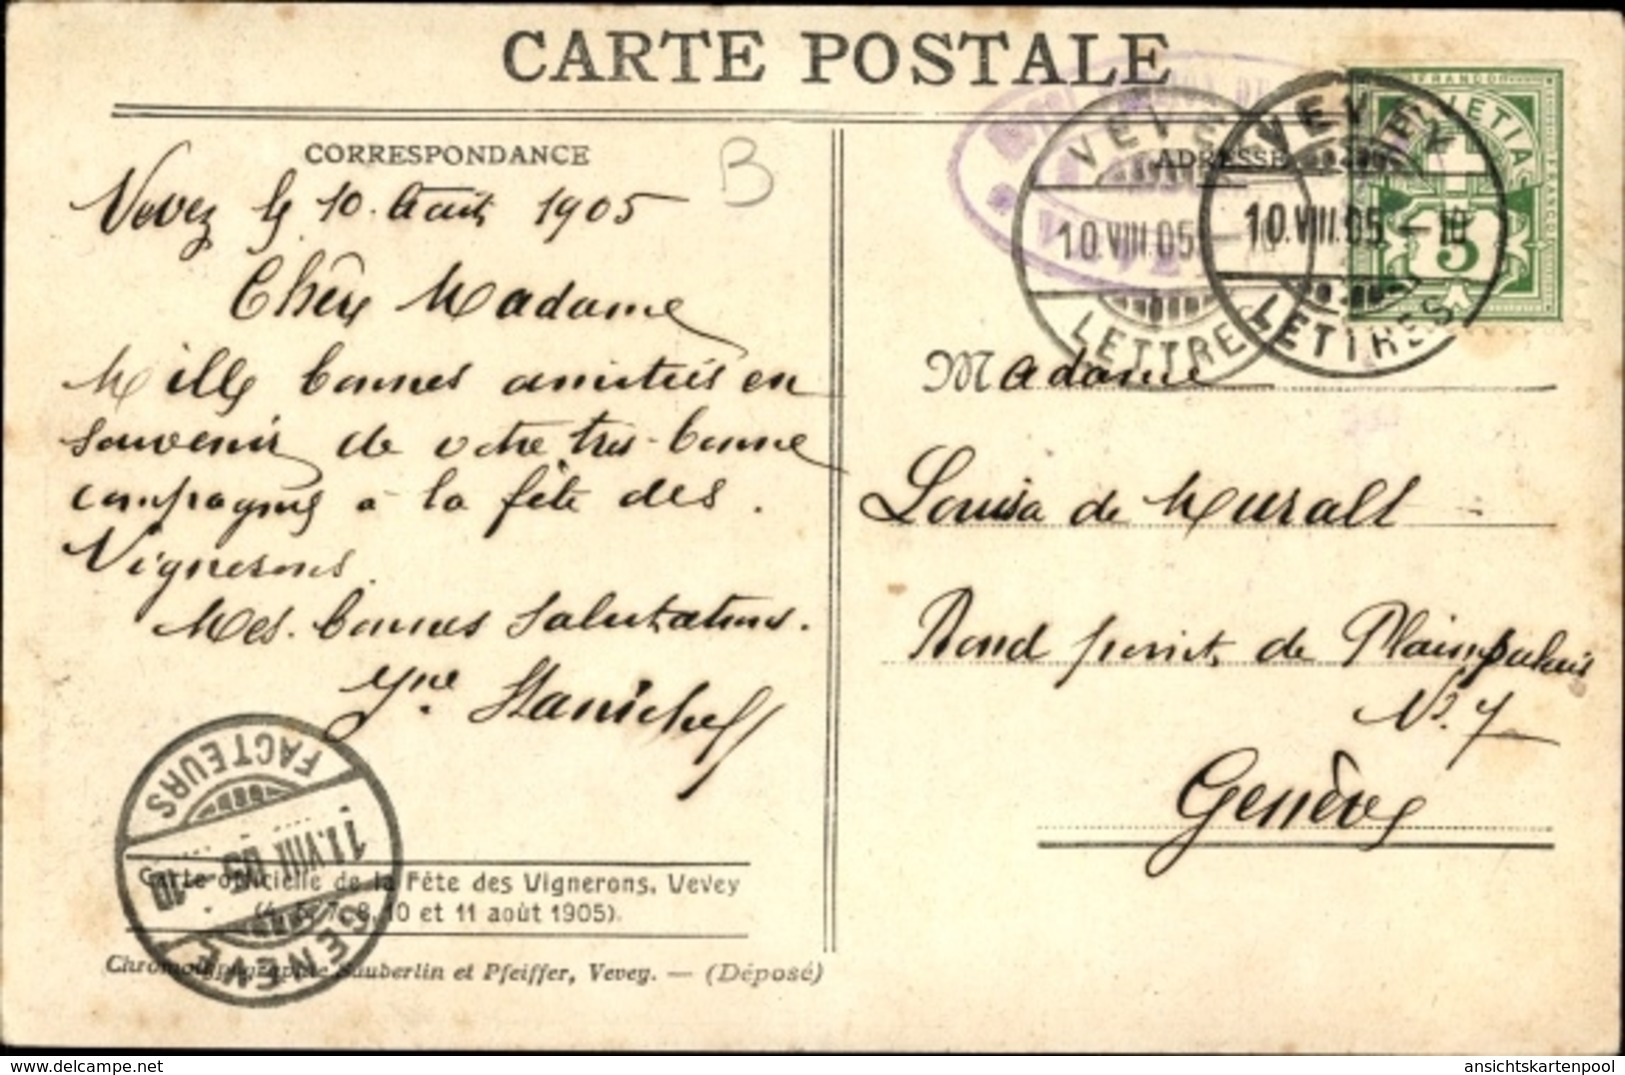 CARTE POSTALE
CORRESPONDANCE
B
Vevey le 10. Août 1905
Chère Madame
Mille bonnes amitiés en
souvenir de votre très-bonne
compagnie à la fête des
Vignerons.
Mes bonnes salutations.
ADRESSE
Madame
Louisa de Muralt
Rond point de Plainpalais
No. 7
Genève
VEVEY
10.VIII.05
LETTRES
VEVEY
10.VIII.05.–10
LETTRES
FRANCO
HELVETIA
5
GENÈVE
11.VIII.05.–10
FACTEURS
Carte officielle de la Fête des Vignerons, Vevey
(4, 5, 7, 8, 10 et 11 août 1905).
Chromotypographie Säuberlin et Pfeiffer, Vevey. — (Déposé)
ansichtskartenpool